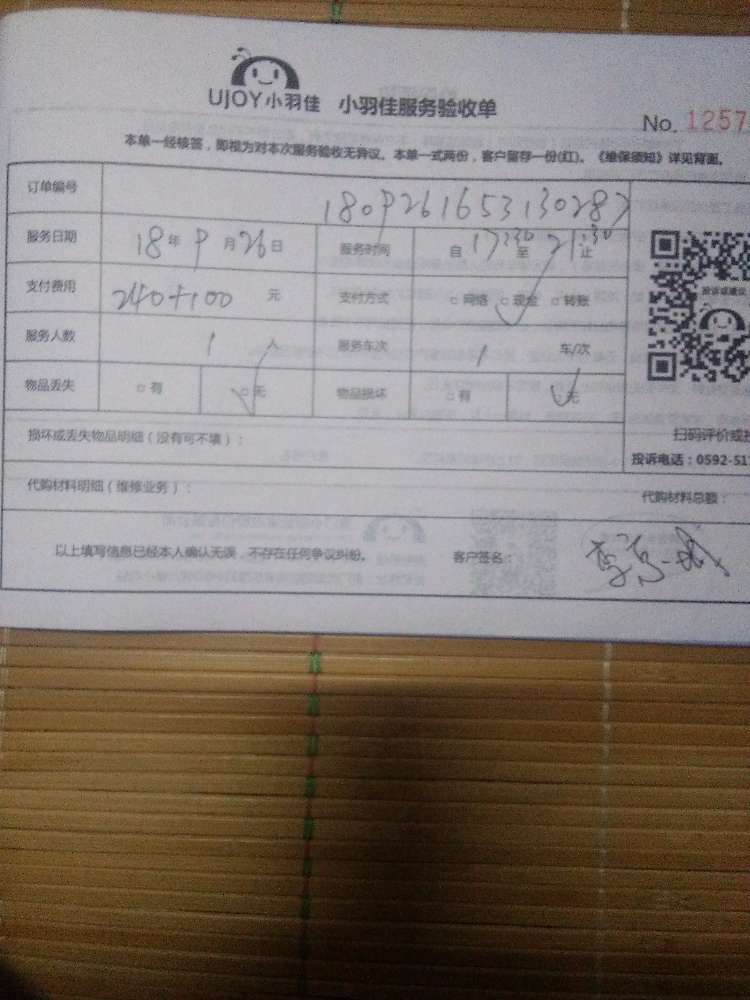 UJOY小羽佳 小羽佳服务验收单
No. 1257
本单一经核签,即视为对本次服务验收无异议。本单一式两份,客户留存一份(红)。《维保须知》详见背面。
订单编号 180926165313028
服务日期 18年9月26日 服务时间 自17:30至21:30止
支付费用 240+100元 支付方式 □网络 □现金 □转账
投诉或建议
服务人数 1人 服务车次 1车/次
物品丢失 □有 □无 物品损坏 □有 □无
损坏或丢失物品明细(没有可不填):
扫码评价或投
投诉电话:0592-51
代购材料明细(维修业务):
代购材料总额:
以上填写信息已经本人确认无误,不存在任何争议纠纷。 客户签名: